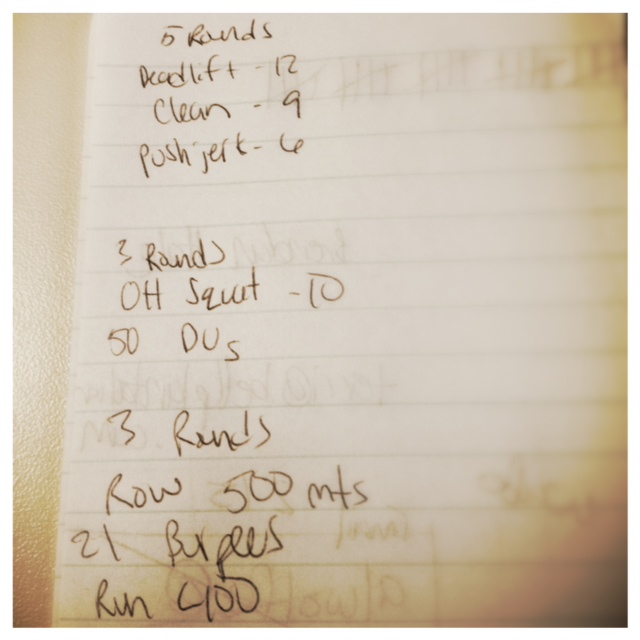 5 Rounds
Deadlift - 12
Clean - 9
push jerk - 6
3 Rounds
OH Squat - 10
50 DUs
3 Rounds
Row 500 mts
21 Burpees
Run 400